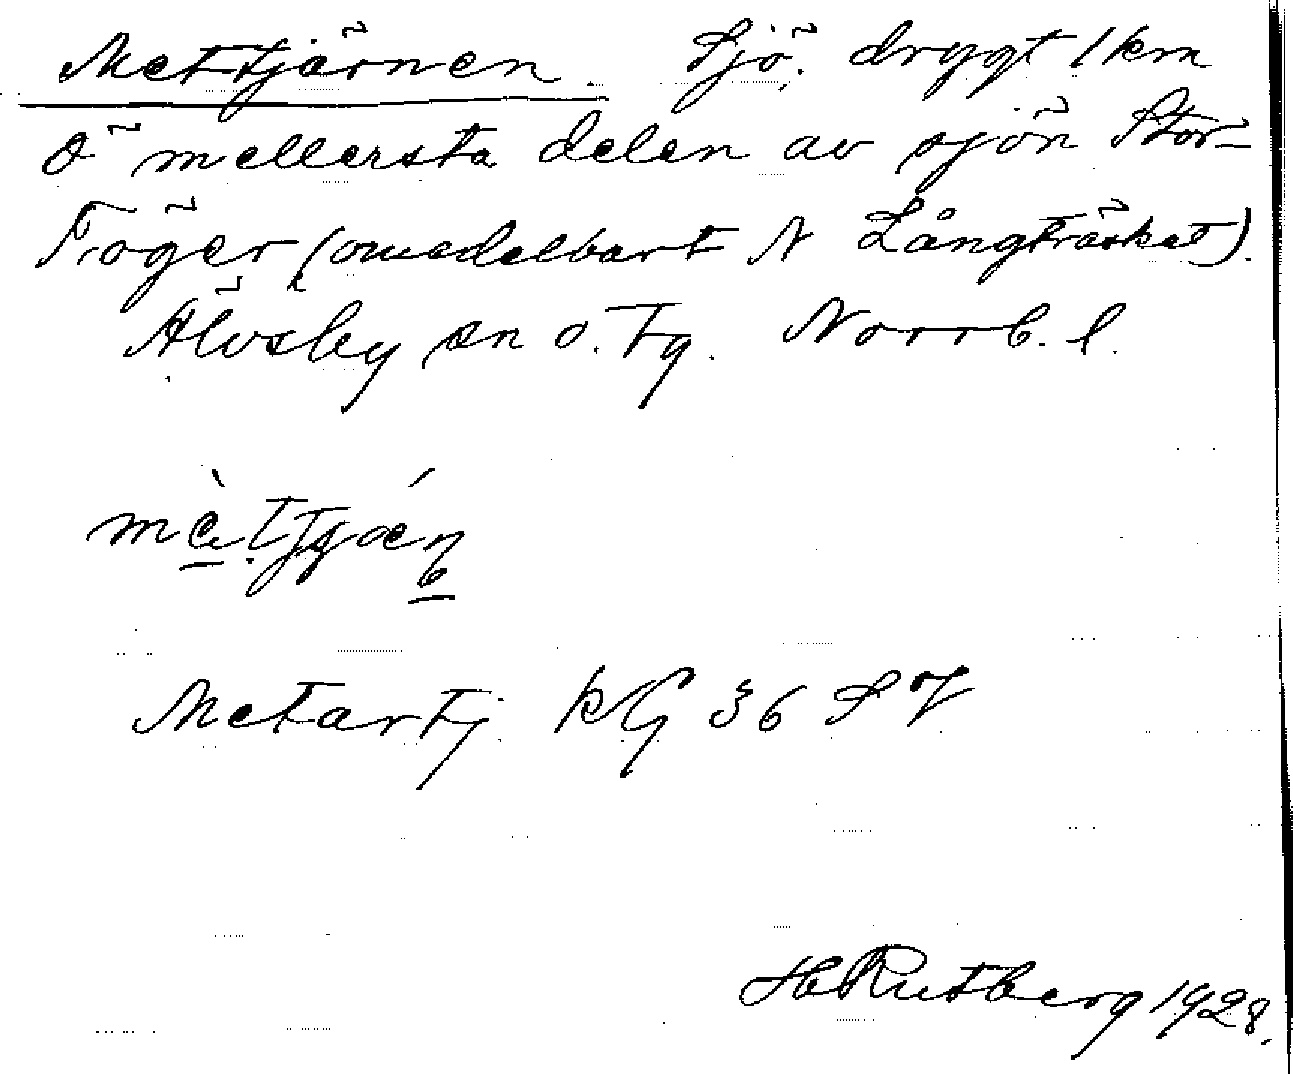 Mettjärnen. Sjö, drygt 1 km
Ö mellersta delen av sjön Stor-
Töger (omedelbart N Långträsket).
Älvsby sn o. Tg. Norrb. l.
Metartj. KG 36 SV
H Rutberg 1928.